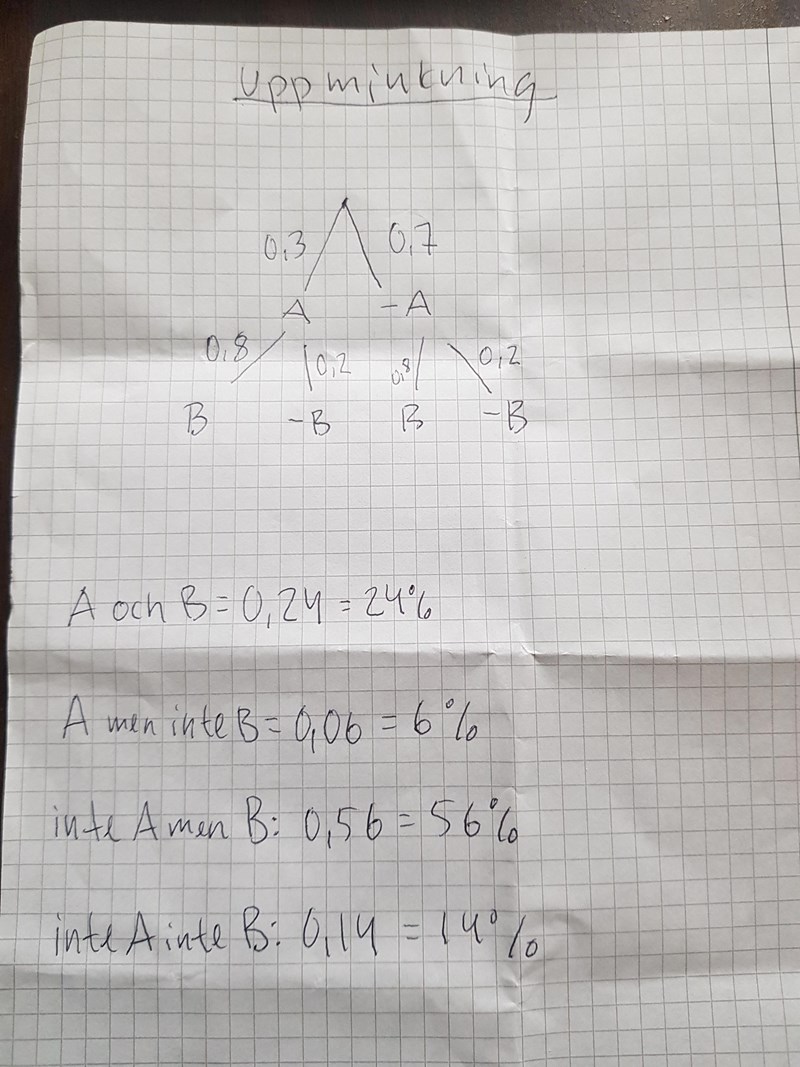 Uppmjukning
0,3 0,7
A -A
0,8 0,2 0,8 0,2
B -B B -B
A och B = 0,24 = 24%
A men inte B = 0,06 = 6%
inte A men B: 0,56 = 56%
inte A inte B: 0,14 = 14%